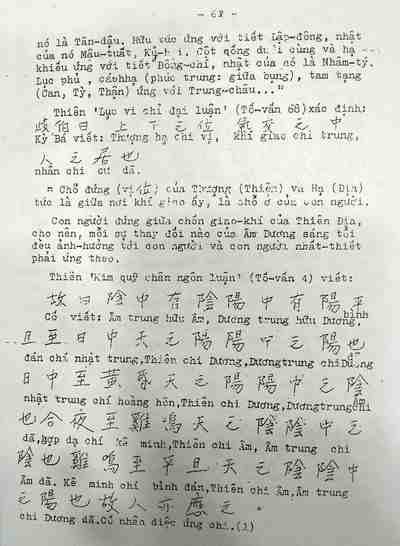 - 68 -
nó là Tân-dậu. Hữu xúc ứng với tiết Lập-đông, nhật
của nó Mậu-tuất, Kỷ-hợi. Cột cùng và hạ
khiếu ứng với tiết Đông-chí, nhật của nó là Nhâm-tý.
Lục phủ, (phúc trung: giữa bụng), tam tạng
(Can, Tỳ, Thận) ứng với Trung-châu..."
Thiên 'Lục vi chỉ đại luận' (Tố-vấn 68)xác định:
岐伯曰 上下之位 氣交之中
Kỳ Bá viết: Thượng hạ chi vị, khí giao chi trung,
人之居也
nhân chi cư dã.
" Chỗ đứng (vị位) của Thượng (Thiên) và Hạ (Địa)
tức là giữa nơi khí giao ấy, là chỗ ở của con người.
Con người đứng giữa chốn giao-khí của Thiên Địa,
cho nên, mỗi sự thay đổi nào của Âm Dương sáng tối
đều ảnh-hưởng tới con người và con người nhất-thiết
phải ứng theo.
Thiên 'Kim quỹ chân ngôn luận' (Tố-vấn 4) viết:
故曰陰中有陰陽中有陽平
Cố viết: Âm trung hữu Âm, Dương trung hữu Dương, bình
旦至日中天之陽陽中之陽也
đán chí nhật trung,Thiên chi Dương,Dươngtrung chiDương
日中至黃昏天之陽陽中之陰
nhật trung chí hoàng hôn,Thiên chi Dương,Dươngtrungchi
也合夜至雞鳴天之陰陰中之
dã,hợp dạ chí kê minh,Thiên chi Âm, Âm trung chi
陰也雞鳴至平旦天之陰陰中
Âm dã. Kê minh chí bình đán,Thiên chi Âm,Âm trung
之陽也故人亦應之。
chi Dương dã.Cố nhân diệc ứng chi.(1)